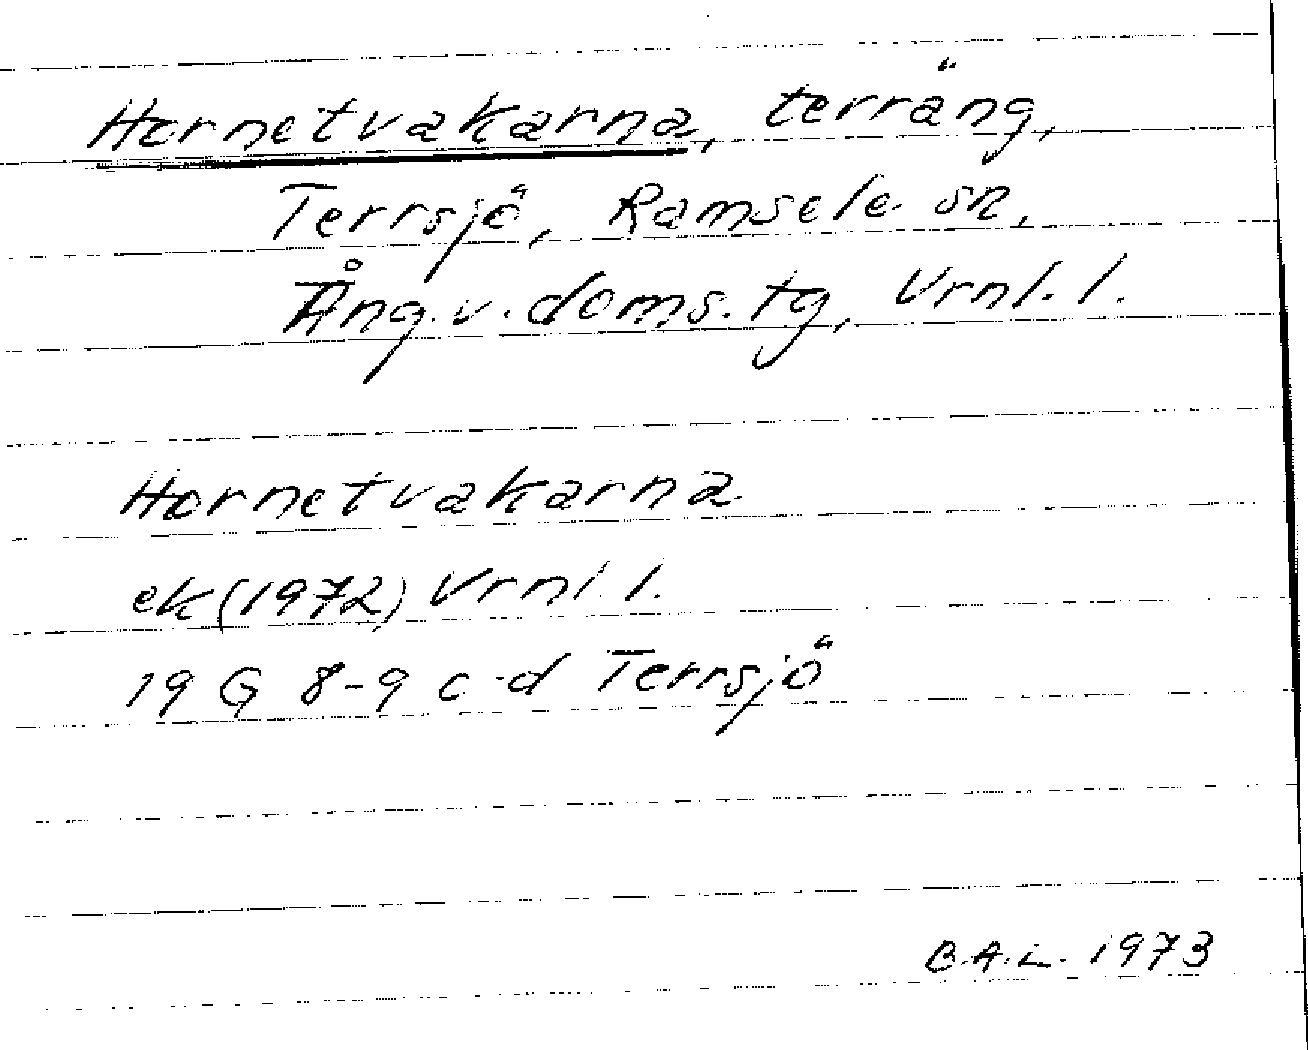 Hornetvakarna, terräng,
Terrsjö, Ramsele sn,
Ång.v.doms.tg, Vrnl.l.
Hornetvakarna
ek(1972) Vrnl.l.
19 G 8-9 c-d Terrsjö
B.A.L. 1973